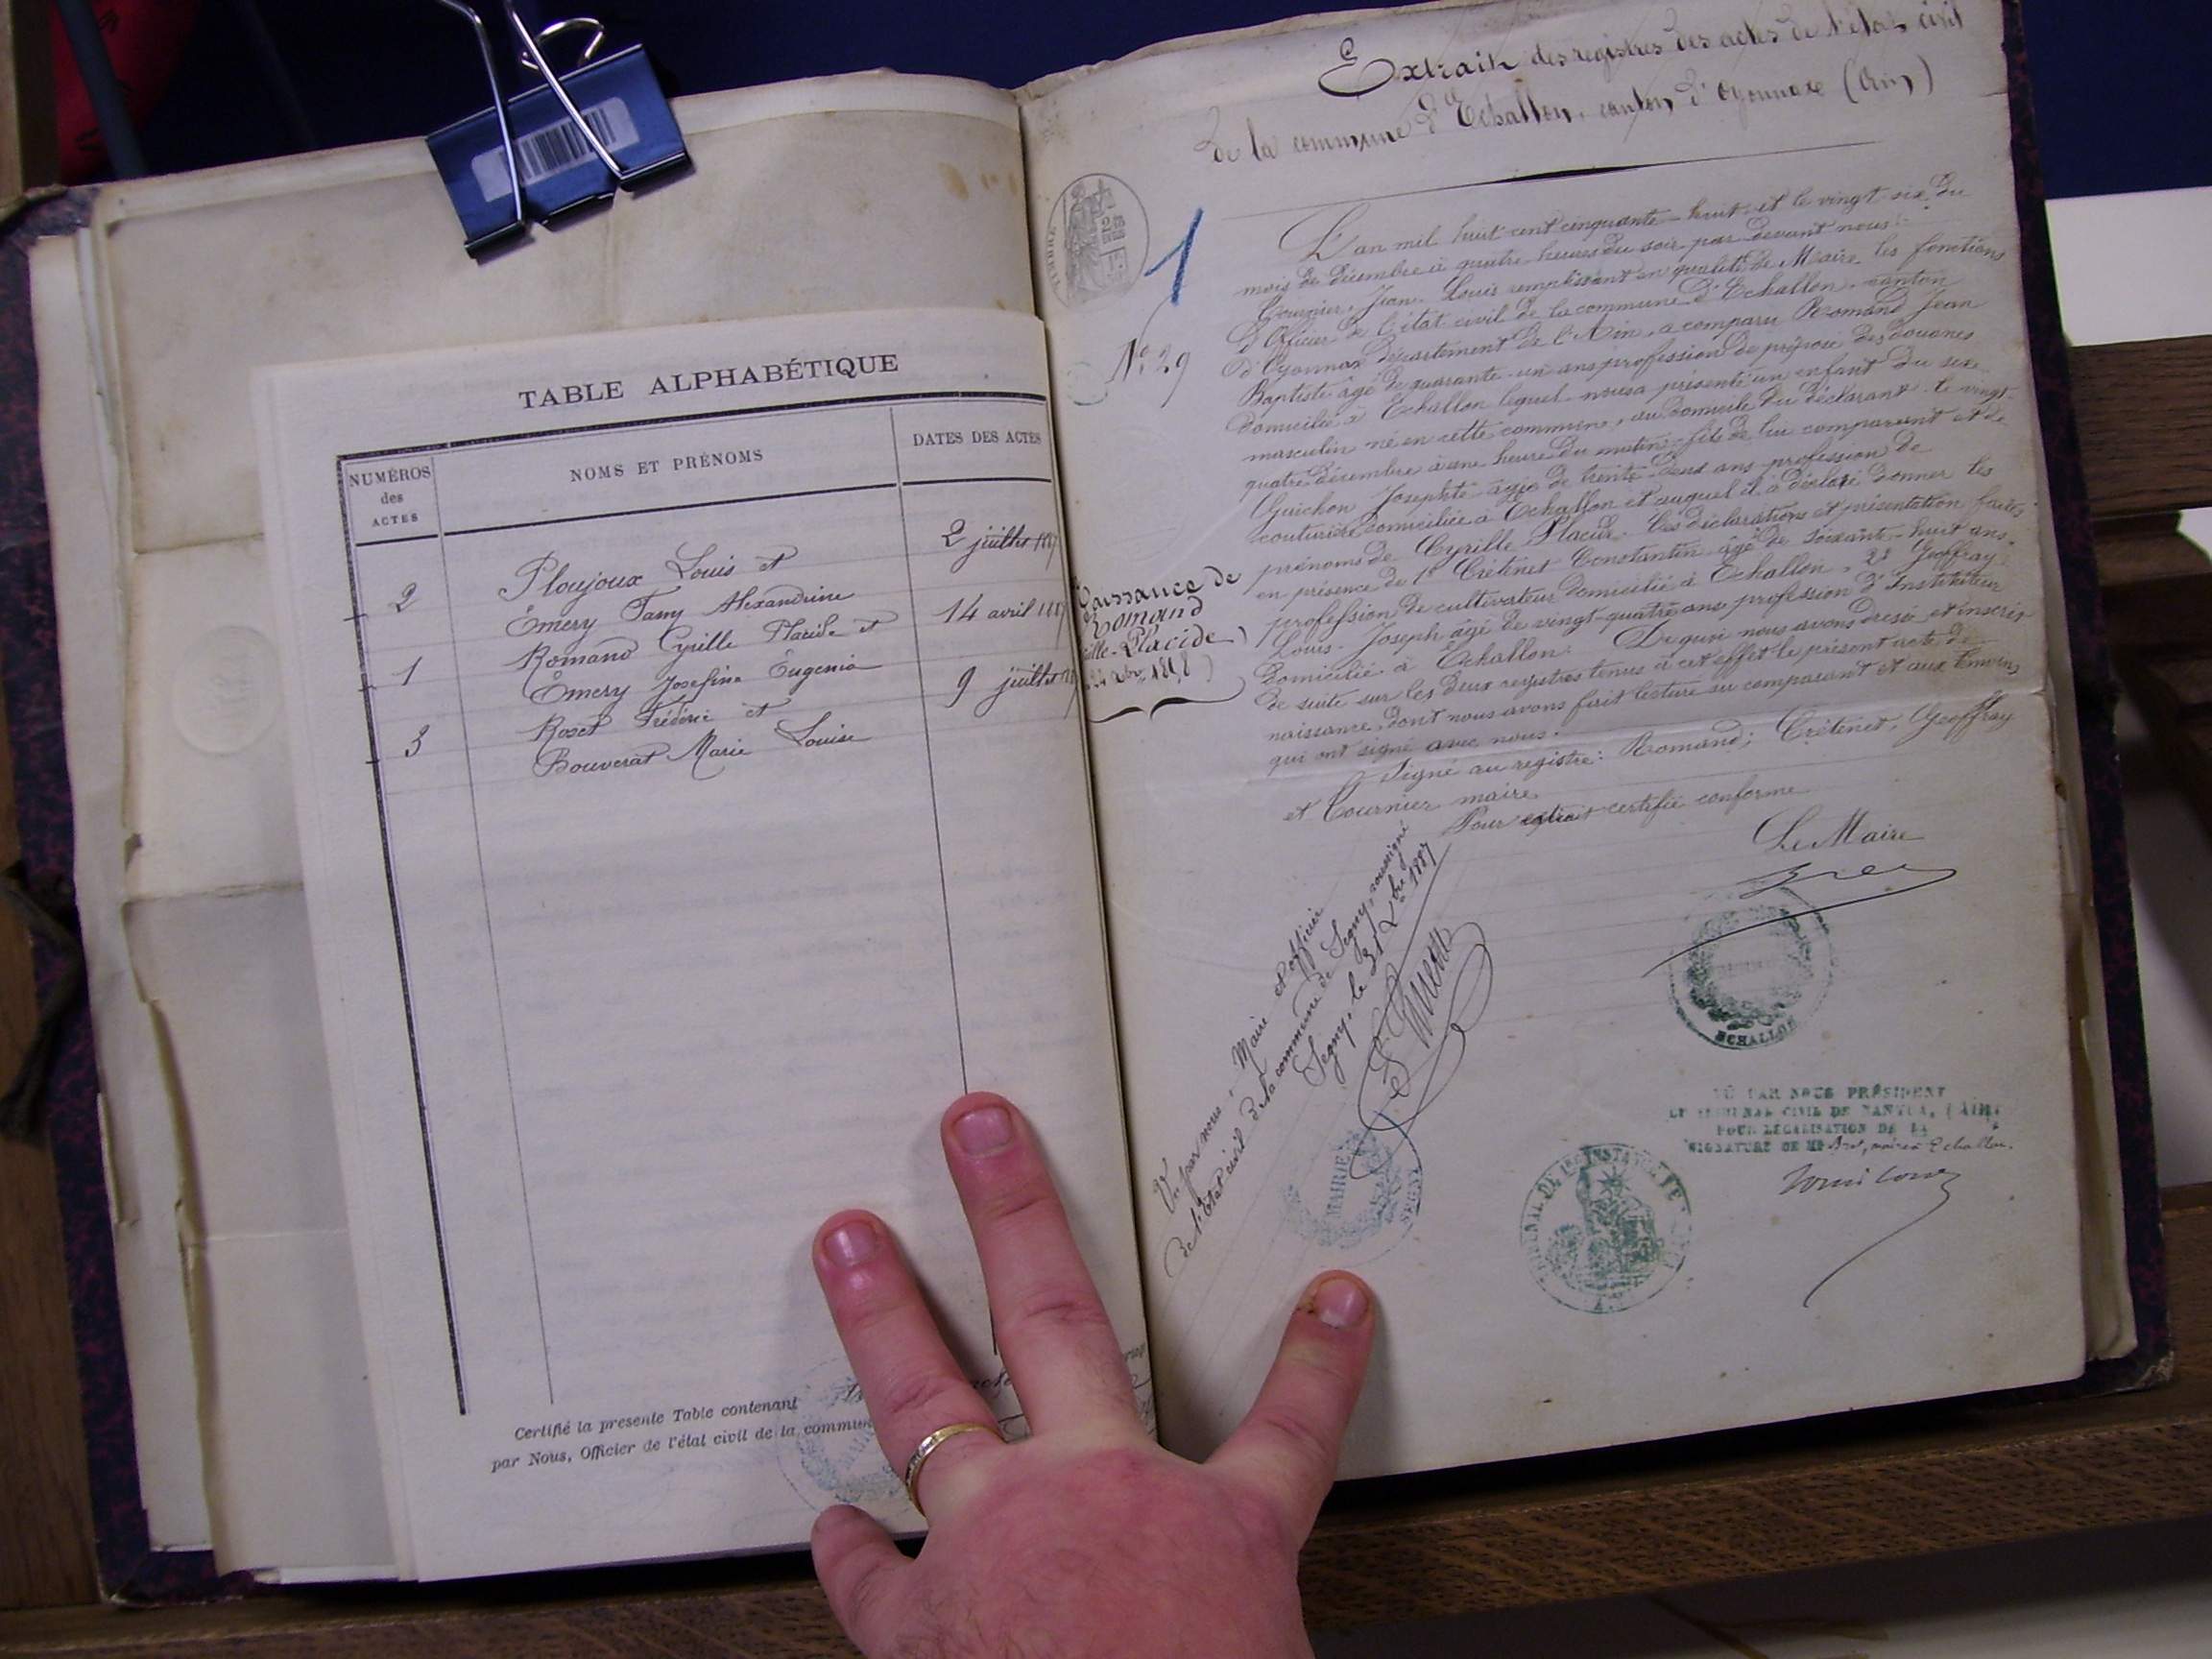 TABLE ALPHABÉTIQUE
NUMÉROS
des
ACTES
NOMS ET PRÉNOMS
DATES DES ACTES
2 Ploujoux Louis et 2 juillet 1887
Émery Fany Alexandrine
1 Romand Cyrille Placide et 14 avril 1887
Émery Josefine Eugenie
3 Roset Frédéric et 9 juillet
Bouverat Marie Louise
Certifié la presente Table contenant
par Nous, Officier de l'état civil de la commun
Extrait des registres des actes de l'état civil
de la commune d'Echallon, canton d'Oyonnax (Ain)
TIMBRE
1
No 29
Naissance de
Romand
Placide
L'an mil huit cent cinquante-huit et le vingt six du
mois de décembre à quatre heures du soir par devant nous
Tournier, Jean-Louis remplissant en qualité de Maire les fonctions
d'Officier de l'état civil de la commune d'Echallon, canton
d'Oyonnax département de l'Ain, a comparu Romand Jean
Baptiste âgé de quarante-un ans profession de préposé des douanes
domicilié à Echallon lequel nous a présenté un enfant du sexe
masculin né en cette commune, au domicile du déclarant le vingt
quatre décembre à une heure du matin, fils de lui comparant et de
Guichon Josephte âgée de trente-deux ans profession de
couturière domiciliée à Echallon et auquel il a déclaré donner les
prénoms de Cyrille Placide. Ces déclarations et présentation faites
en présence de 1o Crétinet Constantin âgé de soixante-huit ans
profession de cultivateur domicilié à Echallon, 2o Geoffray
Louis-Joseph âgé de vingt-quatre ans profession d'Instituteur
domicilié à Echallon. De quoi nous avons dressé et inscrit
de suite sur les deux registres tenus à cet effet le présent acte de
naissance, dont nous avons fait lecture au comparant et aux témoins
qui ont signé avec nous.
Signé au registre: Romand; Crétinet, Geoffray
et Tournier maire.
Pour extrait certifié conforme
Le Maire
ECHALLON
Vu par nous, Maire et officier
de l'Etat civil de la commune de Segny, soussigné
Segny, le 31 Xbre 1887
MAIRIE
SEGNY
VU PAR NOUS PRÉSIDENT
DU TRIBUNAL CIVIL DE NANTUA, (AIN)
POUR LÉGALISATION DE LA
SIGNATURE DE Mr maire Echallon
TRIBUNAL DE 1re INSTANCE